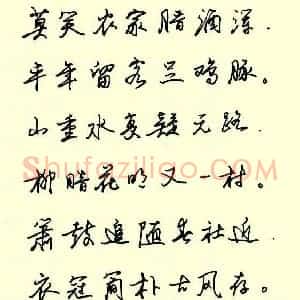 莫笑农家腊酒浑.
丰年留客足鸡豚。
山重水复疑无路.
Shufaziligo.com
柳暗花明又一村。
箫鼓追随春社近.
衣冠简朴古风存。